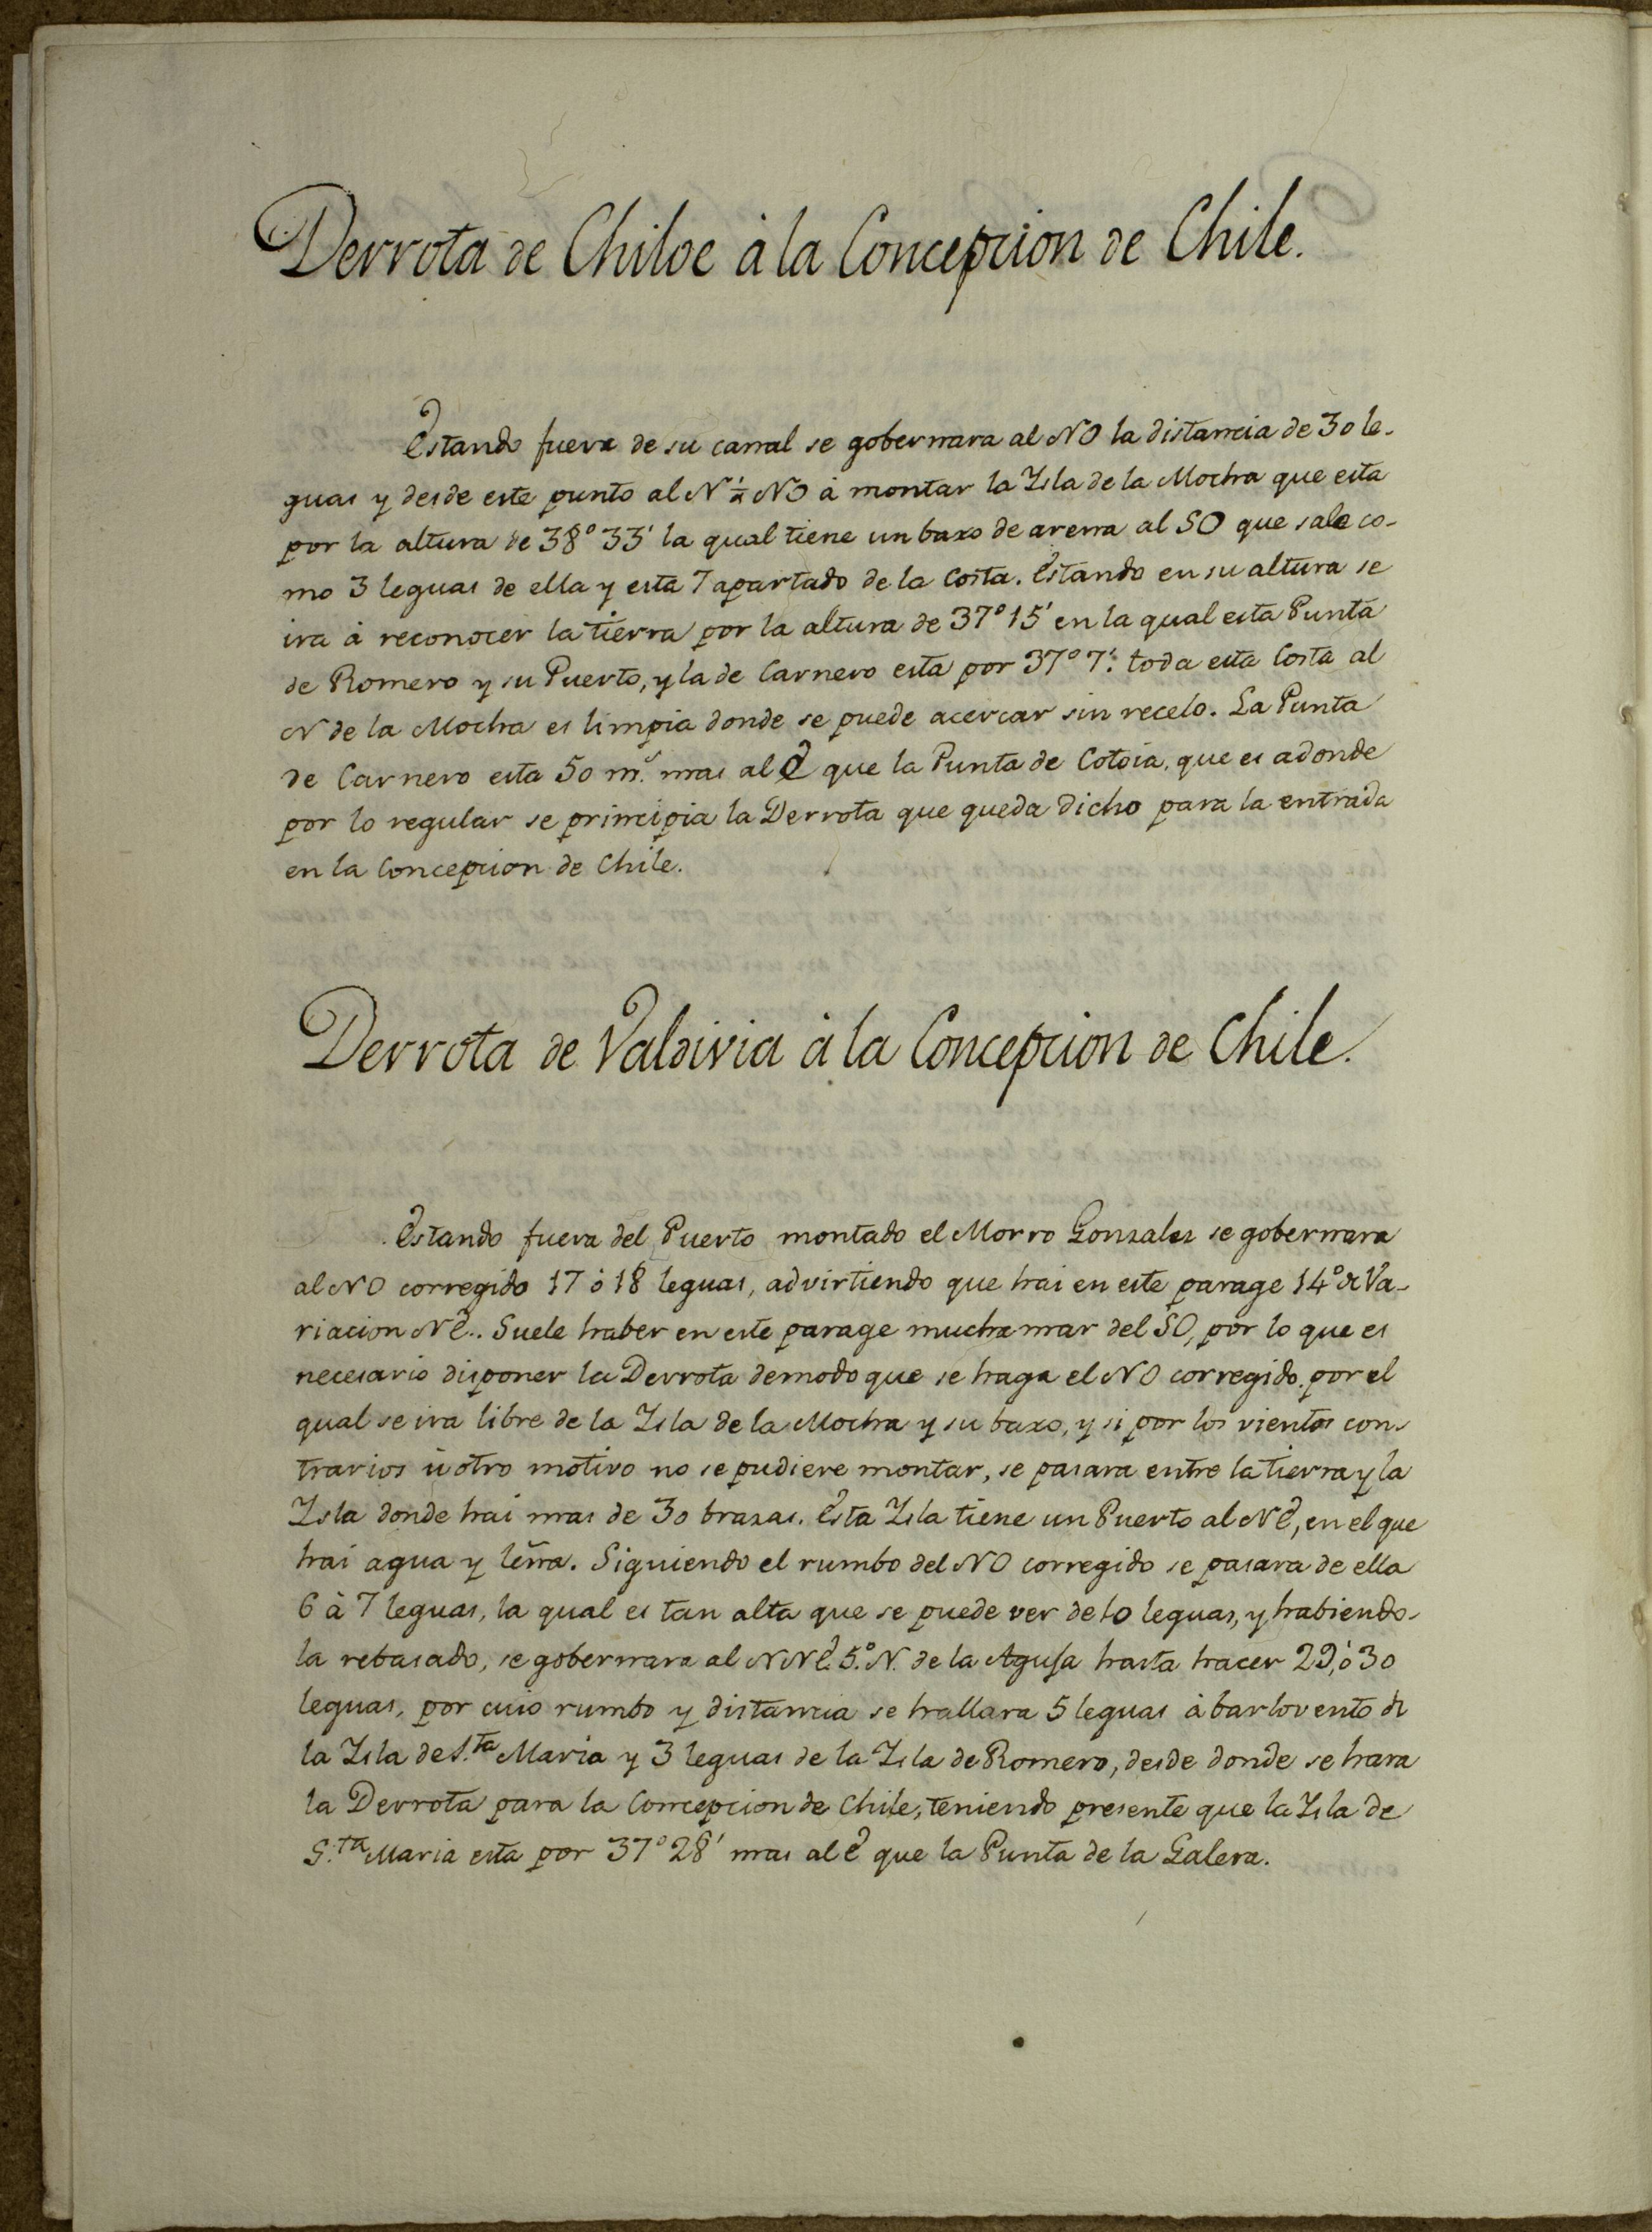 Derrota de Chiloe à la Concepcion de Chile.
Estando fuera de su canal se gobernara al NO la distancia de 30 le-
guas y desde este punto al N ¼ NO à montar la Isla de la Mocha que esta
por la altura de 38° 33' la qual tiene un baxo de arena al SO que sale co-
mo 3 leguas de ella y esta 7 apartado de la Costa. Estando en su altura se
ira à reconocer la tierra por la altura de 37° 15' en la qual esta Punta
de Romero y su Puerto, y la de Carnero esta por 37° 7'. toda esta Costa al
N de la Mocha es limpia donde se puede acercar sin recelo. La Punta
de Carnero esta 50 m.s mas al E que la Punta de Cotoia, que es adonde
por lo regular se principia la Derrota que queda dicho para la entrada
en la Concepcion de Chile.
Derrota de Valdivia à la Concepcion de Chile.
Estando fuera del Puerto montado el Morro Gonzalez se gobernara
al NO corregido 17 ò 18 leguas, advirtiendo que hai en este parage 14° de Va-
riacion NE.. Suele haber en este parage mucha mar del SO, por lo que es
necesario disponer la Derrota de modo que se haga el NO corregido. por el
qual se ira libre de la Isla de la Mocha y su baxo, y si por los vientos con-
trarios ù otro motivo no se pudiere montar, se pasara entre la tierra y la
Isla donde hai mas de 30 brazas. Esta Isla tiene un Puerto al NE, en el que
hai agua y leña. Siguiendo el rumbo del NO corregido se pasara de ella
6 à 7 leguas, la qual es tan alta que se puede ver de 10 leguas, y habiendo-
la rebasado, se gobernara al NNE. 5.° N. de la Aguja hasta hacer 29, ò 30
leguas, por cuio rumbo y distancia se hallara 5 leguas à barlovento de
la Isla de S.ta Maria y 3 leguas de la Isla de Romero, desde donde se hara
la Derrota para la Concepcion de Chile, teniendo presente que la Isla de
S.ta Maria esta por 37° 28' mas al E que la Punta de la Galera.